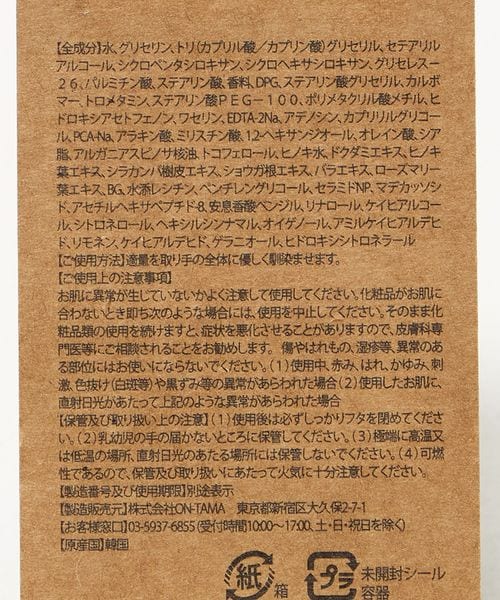 【全成分】水、グリセリン、トリ(カプリル酸／カプリン酸)グリセリル、セテアリル
アルコール、シクロペンタシロキサン、シクロヘキサシロキサン、グリセレス－
２６、パルミチン酸、ステアリン酸、香料、DPG、ステアリン酸グリセリル、カルボ
マー、トロメタミン、ステアリン酸ＰＥＧ－１００、ポリメタクリル酸メチル、ヒ
ドロキシアセトフェノン、ワセリン、EDTA-2Na、アデノシン、カプリリルグリコー
ル、PCA-Na、アラキン酸、ミリスチン酸、1,2-ヘキサンジオール、オレイン酸、シア
脂、アルガニアスピノサ核油、トコフェロール、ヒノキ水、ドクダミエキス、ヒノキ
葉エキス、シラカンバ樹皮エキス、ショウガ根エキス、バラエキス、ローズマリー
葉エキス、BG、水添レシチン、ペンチレングリコール、セラミドNP、マデカッソシ
ド、アセチルヘキサペプチド-8、安息香酸ベンジル、リナロール、ケイヒアルコー
ル、シトロネロール、ヘキシルシンナマル、オイゲノール、アミルケイヒアルデヒ
ド、リモネン、ケイヒアルデヒド、ゲラニオール、ヒドロキシシトロネラール
【ご使用方法】適量を取り手の全体に優しく馴染ませます。
【ご使用上の注意事項】
お肌に異常が生じていないかよく注意して使用してください。化粧品がお肌に
合わないとき即ち次のような場合には、使用を中止してください。そのまま化
粧品類の使用を続けますと、症状を悪化させることがありますので、皮膚科専
門医等にご相談されることをお勧めします。 傷やはれもの、湿疹等、異常のあ
る部位にはお使いにならないでください。(１)使用中、赤み、はれ、かゆみ、刺
激、色抜け(白斑等)や黒ずみ等の異常があらわれた場合(２)使用したお肌に、
直射日光があたって上記のような異常があらわれた場合
【保管及び取り扱い上の注意】(１)使用後は必ずしっかりフタを閉めてくださ
い。(２)乳幼児の手の届かないところに保管してください。(３)極端に高温又
は低温の場所、直射日光のあたる場所には保管しないでください。(４)可燃
性であるので、保管及び取り扱いにあたって火気に十分注意してください。
【製造番号及び使用期限】別途表示
【製造販売元】株式会社ON-TAMA　東京都新宿区大久保2-7-1
【お客様窓口】03-5937-6855(受付時間10:00～17:00、土・日・祝日を除く)
【原産国】韓国
紙 箱 プラ 未開封シール
容器